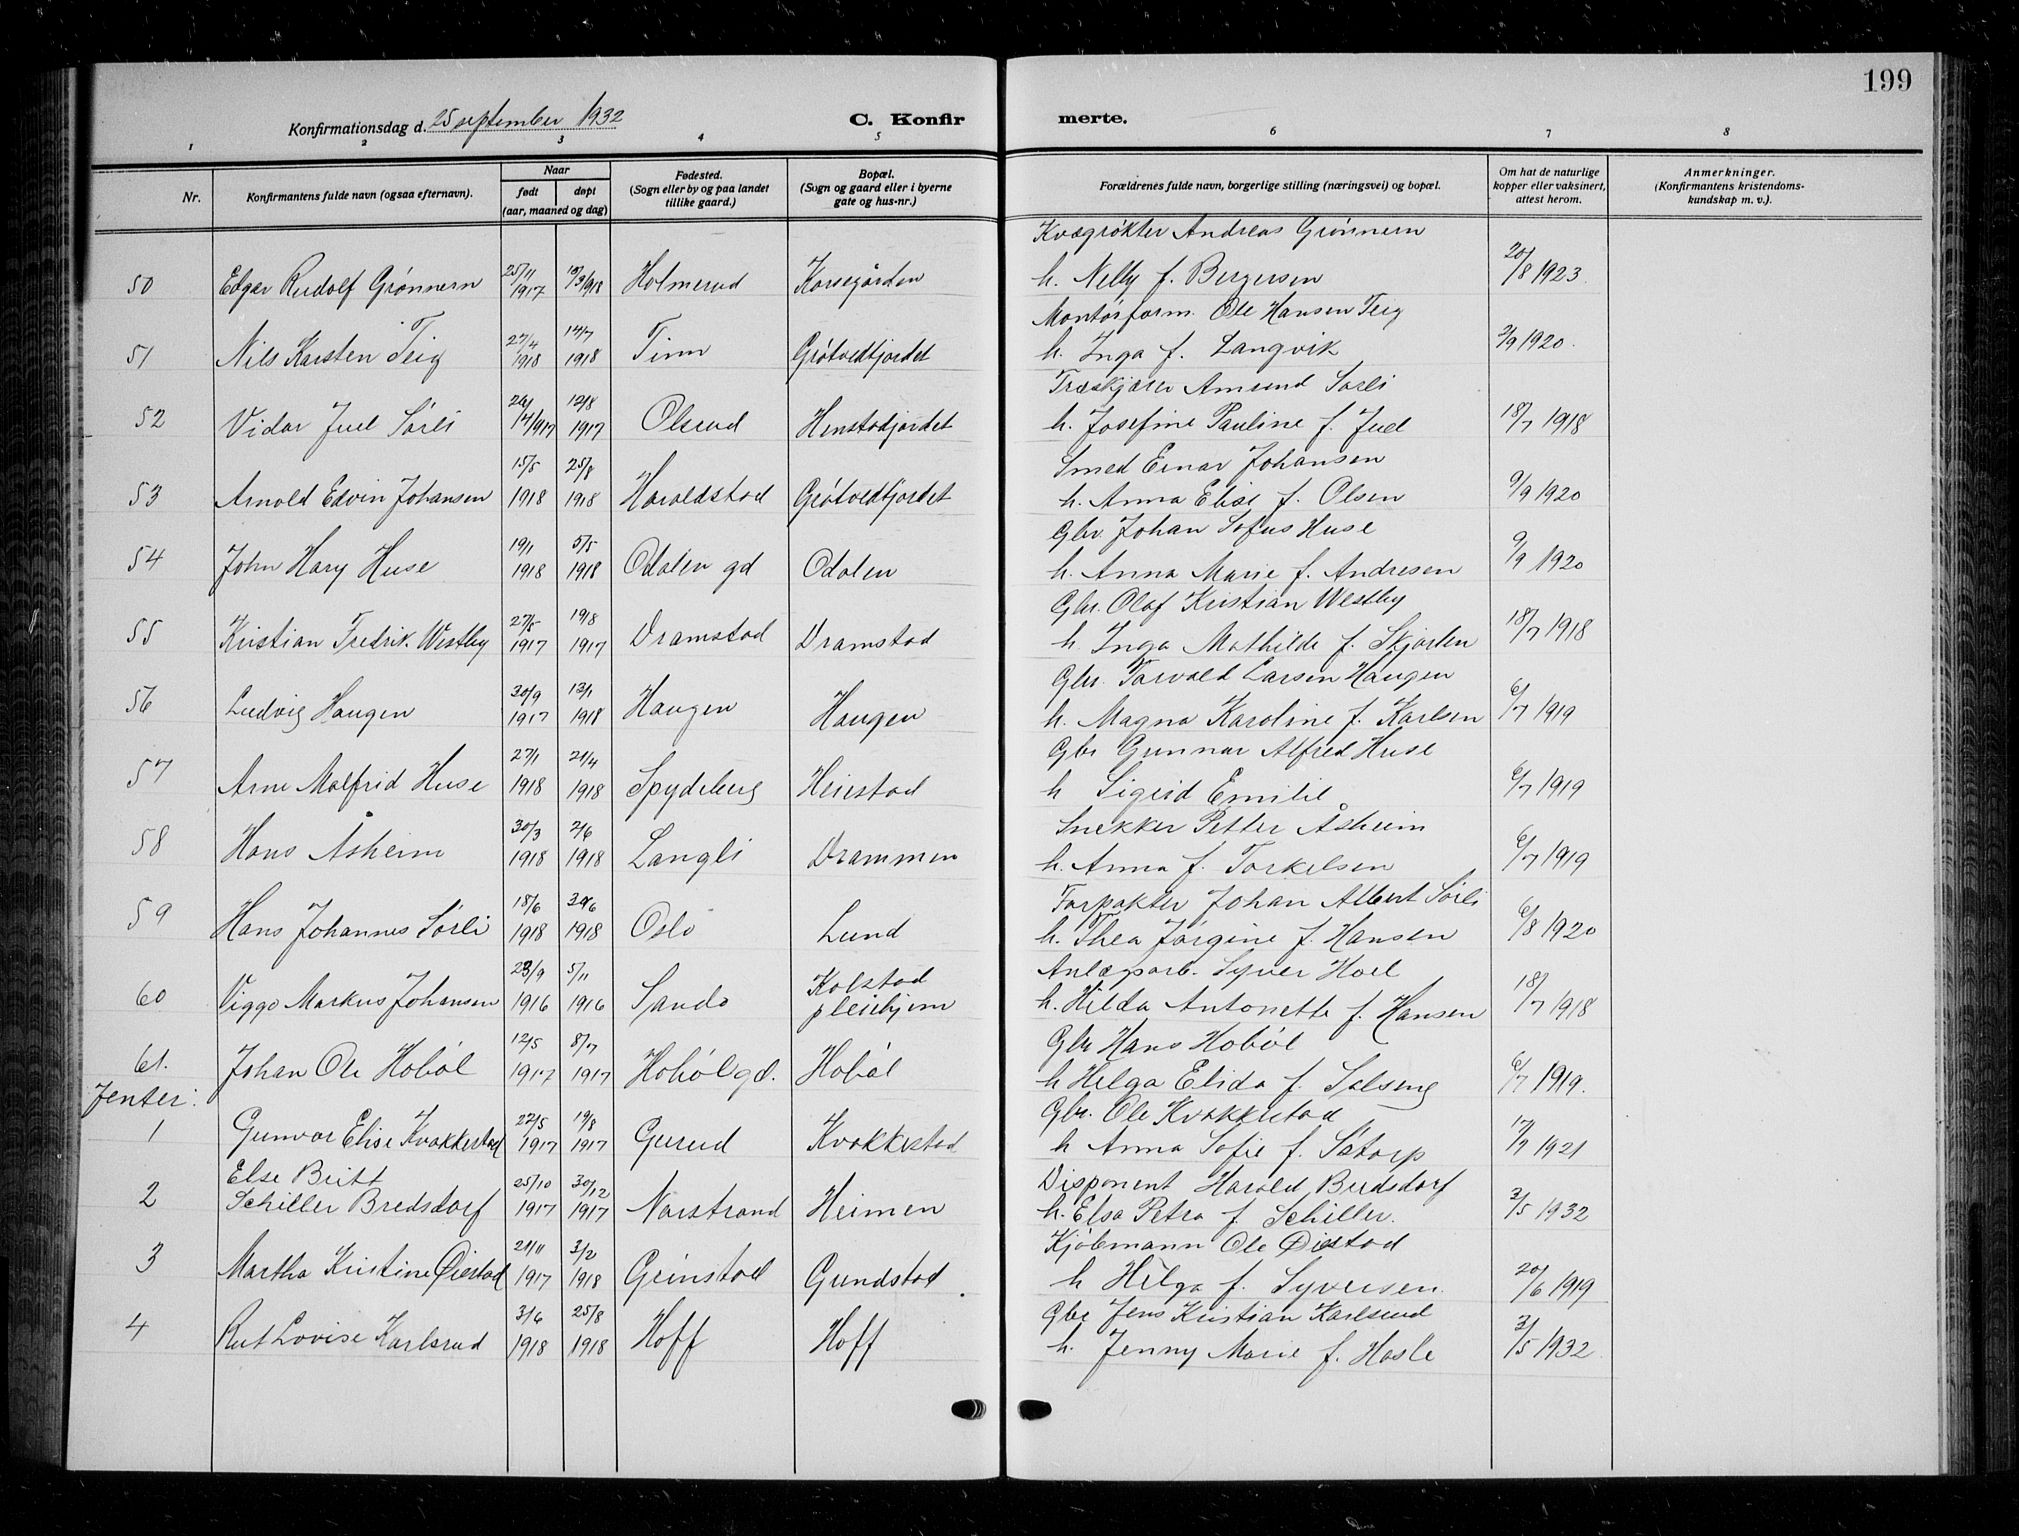 199
Konfirmationsdag d. 25 september 1932 C. Konfirmerte.
1 2 3 4 5 6 7 8
Nr. Konfirmantens fulde navn (ogsaa efternavn). Naar født døpt (aar, maaned og dag) Fødested. (Sogn eller by og paa landet tillike gaard.) Bopæl. (Sogn og gaard eller i byerne gate og hus-nr.) Forældrenes fulde navn, borgerlige stilling (næringsvei) og bopæl. Om hat de naturlige kopper eller vaksinert, attest herom. Anmerkninger. (Konfirmantens kristendomskundskap m. v.).
Kvægrøkter Andreas Grønnern
50 Edgar Rudolf Grønnern 25/11 1917 10/3 1918 Holmerud Korsegården h. Nelly f. Bergersen 20/8 1923
Montørform. Ole Hansen Teig
51 Nils Karsten Teig 27/4 1918 14/7 1918 Tinn Grøtvedtjordet h. Inga f. Langvik 2/9 1920.
Træskjærer Amund Sørli
52 Vidar Juel Sørli 1917 12/8 1917 Olerud Henstadjordet h. Josefine Pauline f. Juel 18/7 1918
Smed Einar Johansen
53 Arnold Edvin Johansen 15/5 1918 25/8 1918 Haroldstad Grøtvedtjordet h. Anna Elise f. Olsen 9/9 1920
Gbr. Johan Sofus Huse
54 John Hary Huse 19/1 1918 5/5 1918 Odalen gd Odalen h. Anna Marie f. Andresen 9/9 1920
Gbr. Olaf Kristian Westby
55 Kristian Fredrik Westby 27/5 1917 19/8 1917 Dramstad Dramstad h. Inga Mathilde f. Skjorten 18/7 1918
Gbr. Torvald Larsen Haugen
56 Ludvig Haugen 30/9 1917 13/1 1918 Haugen Haugen h. Magna Karoline f. Karlsen 6/7 1919
Gbr Gunnar Alfred Huse
57 Arne Malfrid Huse 27/1 1918 21/4 1918 Spydeberg Heiestad h Sigrid Emilie 6/7 1919
Snekker Petter Åsheim
58 Hans Åsheim 30/3 1918 2/6 1918 Langli Drammen h. Anna f. Torkelsen 6/7 1919
Forpakter Johan Albert Sørli
59 Hans Johannes Sørli 18/6 1918 30/6 1918 Oslo Lund h. Thea Jørgine f. Hansen 6/8 1920
Anlægsarb. Syver Hoel
60 Viggo Markus Johansen 23/9 1916 5/11 1916 Sando Kolstad pleiehjem h. Hilda Antonette f. Hansen 18/7 1918
Gbr Hans Hobøl
61. Johan Ole Hobøl 12/5 1917 8/7 1917 Hobøl gd. Hobøl h Helga Elida f. Solseng 6/7 1919.
Jenter:
Gbr. Ole Kvakkestad
1 Gunvor Elise Kvakkestad 22/5 1917 19/8 1917 Gurud Kvakkestad h Anna Sofie f. Såtorp 1921
Disponent Harold Bredsdorf
2 Else Britt Schiller Bredsdorf 25/10 1917 30/12 1917 Norstrand Heimen h. Elsa Petra f Schiller. 3/5 1932
Kjøbmann Ole Øiestad
3 Martha Kristine Øiestad 21/11 1917 3/2 1918 Grinstad Grindstad. h Helga f. Syversen. 20/6 1919
Gbr Jens Kristian Karlsrud
4 Rut Lovise Karlsrud 3/6 1918 25/8 1918 Hoff Hoff h. Jenny Marie f. Hasle 3/5 1932